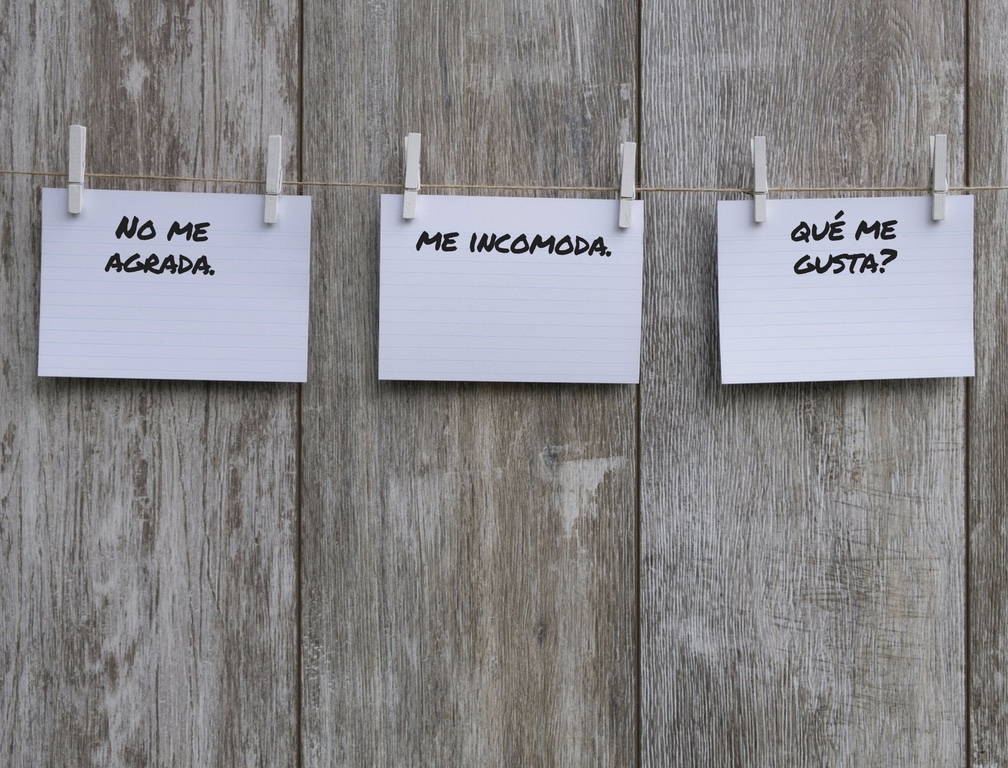 No me
agrada.
me incomoda.
qué me
gusta?